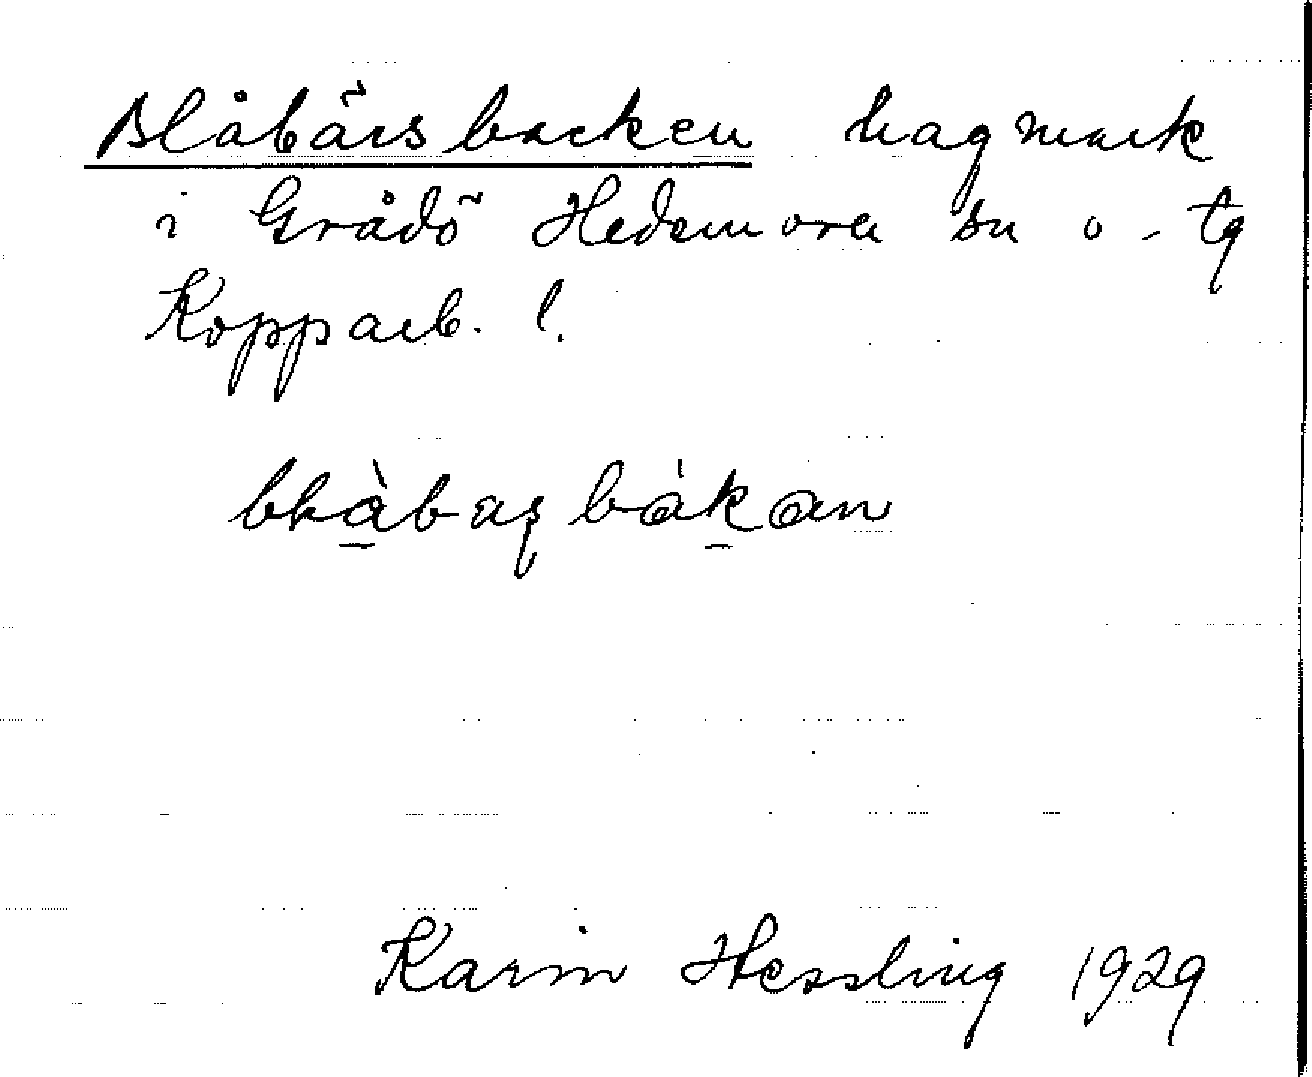 Blåbärsbacken hagmark
i Grådö Hedemora sn o. tg
Kopparb. l.
Karin Hessling 1929